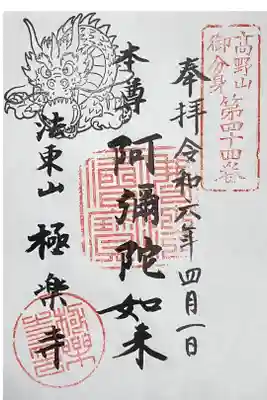 高野山
御分身
第四十四番
奉拝 令和六年 四月一日
本尊
阿彌陀如来
法東山 極楽寺